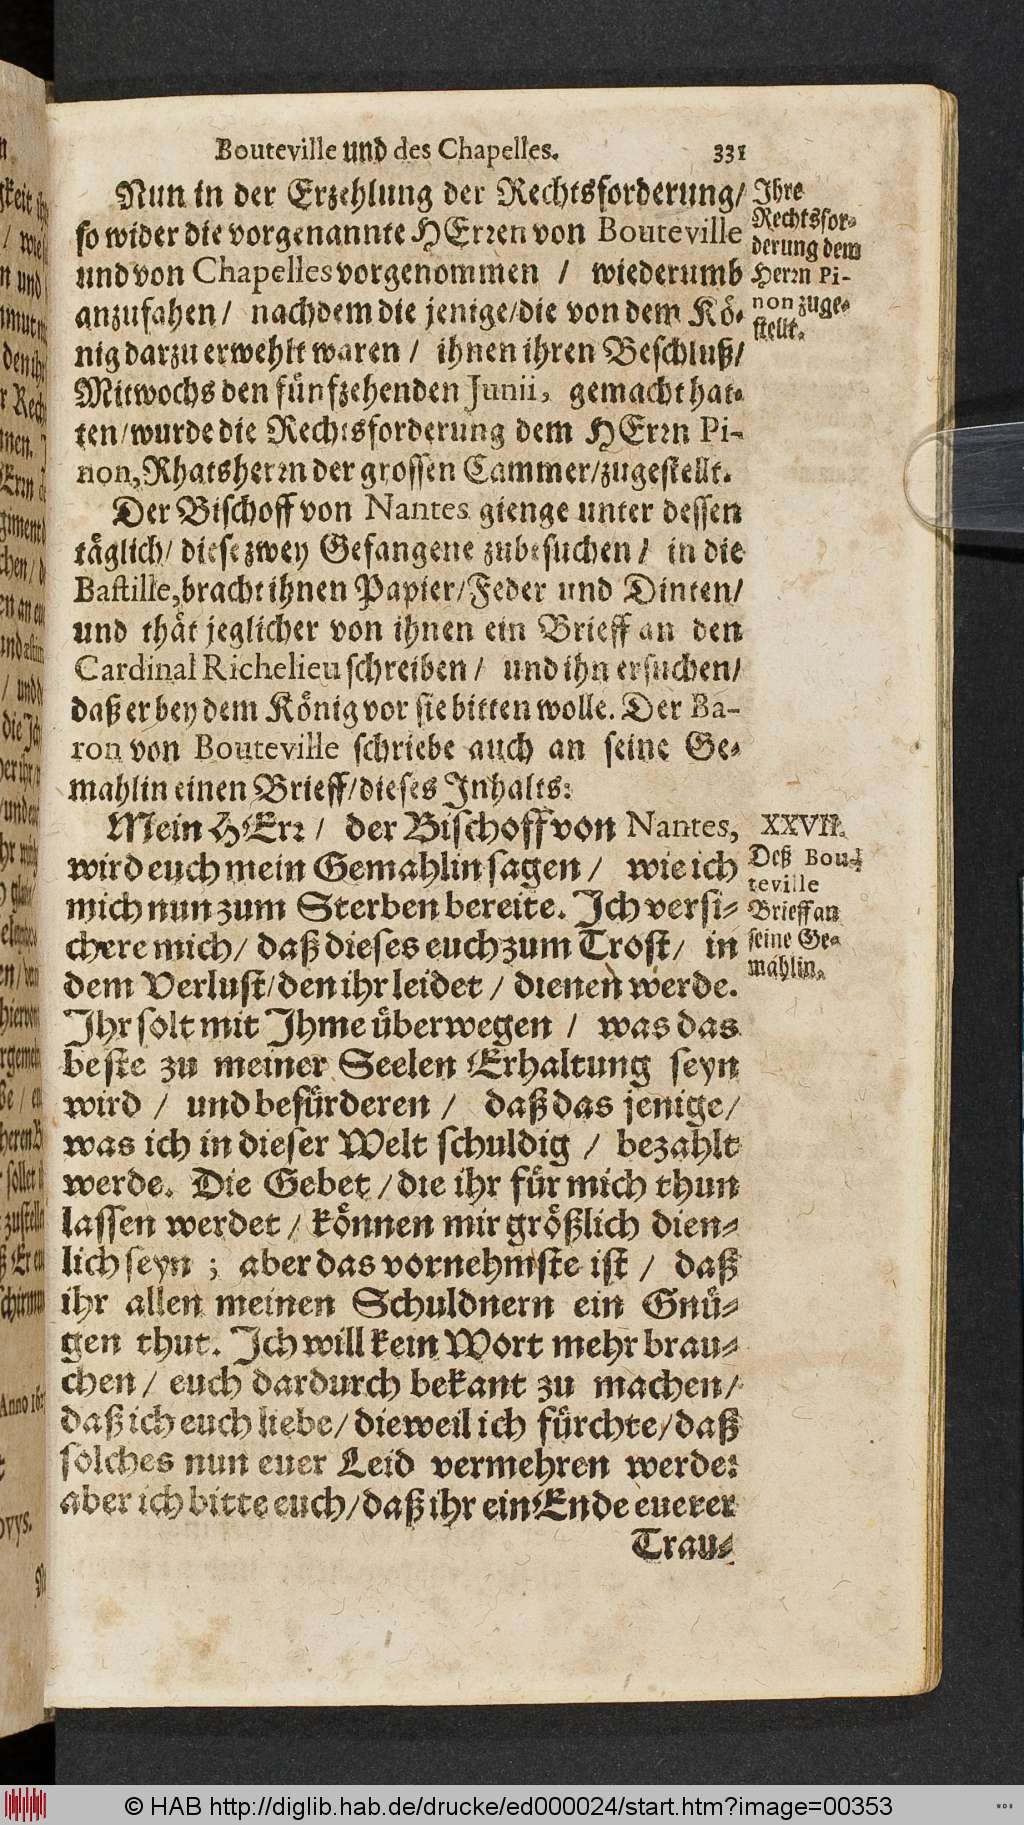 Bouteville und des Chapelles. 331
Nun in der Erzehlung der Rechtsforderung/
so wider die vorgenannte HErren von Bouteville
und von Chapelles vorgenommen / wiederumb
anzufahen / nachdem die jenige / die von dem Kö-
nig darzu erwehlt waren / ihnen ihren Beschluß/
Mitwochs den fünfzehenden Junii, gemacht hat-
ten / wurde die Rechtsforderung dem HErrn Pi-
non, Rhatsherrn der grossen Cammer / zugestellt.
Ihre
Rechtsfor-
derung dem
Herrn Pi-
non zuge-
stellt.
Der Bischoff von Nantes gienge unter dessen
täglich / diese zwey Gefangene zubesuchen / in die
Bastille, bracht ihnen Papier / Feder und Dinten/
und thät jeglicher von ihnen ein Brieff an den
Cardinal Richelieu schreiben / und ihn ersuchen/
daß er bey dem König vor sie bitten wolle. Der Ba-
ron von Bouteville schriebe auch an seine Ge-
mahlin einen Brieff / dieses Inhalts:
Mein HErr / der Bischoff von Nantes,
wird euch mein Gemahlin sagen / wie ich
mich nun zum Sterben bereite. Ich versi-
chere mich / daß dieses euch zum Trost / in
dem Verlust / den ihr leidet / dienen werde.
Ihr solt mit Ihme überwegen / was das
beste zu meiner Seelen Erhaltung seyn
wird / und befürderen / daß das jenige/
was ich in dieser Welt schuldig / bezahlt
werde. Die Gebet / die ihr für mich thun
lassen werdet / können mir größlich dien-
lich seyn ; aber das vornehmste ist / daß
ihr allen meinen Schuldnern ein Gnü-
gen thut. Ich will kein Wort mehr brau-
chen / euch dardurch bekant zu machen/
daß ich euch liebe / dieweil ich fürchte / daß
solches nun euer Leid vermehren werde:
aber ich bitte euch / daß ihr ein Ende euerer
Trau-
XXVII.
Deß Bou-
teville
Brieff an
seine Ge-
mahlin.
© HAB http://diglib.hab.de/drucke/ed000024/start.htm?image=00353